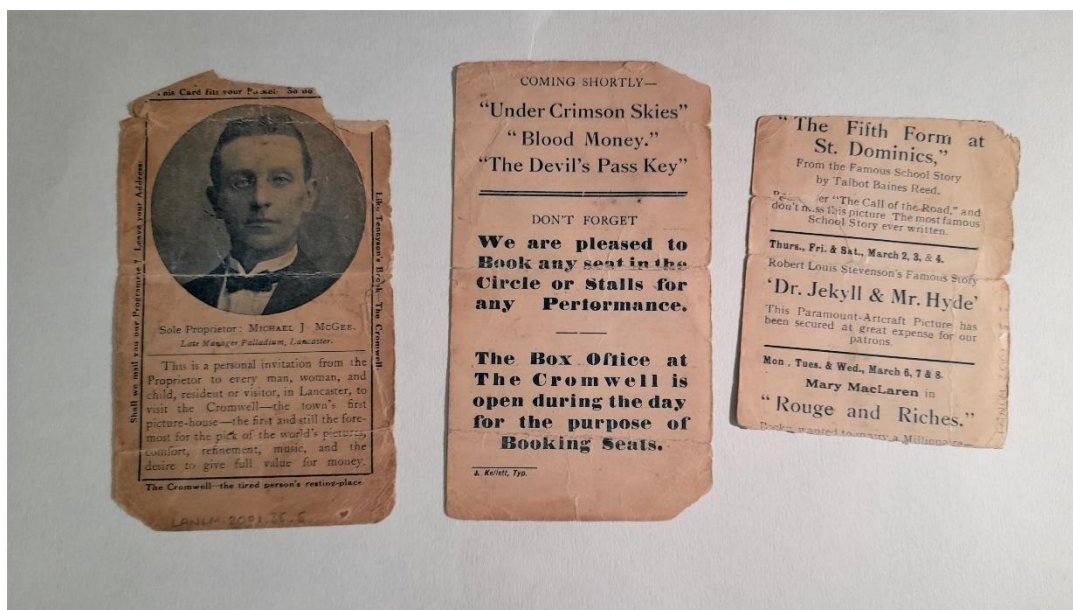 This Card fits your Pocket: So do
Shall we mail you our Programme? Leave your Address:
Like Tennyson's Brook The Cromwell
Sole Proprietor: MICHAEL J McGEE.
Late Manager Palladium, Lancaster.
This is a personal invitation from the
Proprietor to every man, woman, and
child, resident or visitor, in Lancaster, to
visit the Cromwell—the town's first
picture-house—the first and still the fore-
most for the pick of the world's pictures,
comfort, refinement, music, and the
desire to give full value for money.
The Cromwell—the tired person's resting-place
LANLM.2001.35.5
COMING SHORTLY—
"Under Crimson Skies"
"Blood Money."
"The Devil's Pass Key"
DON'T FORGET
We are pleased to
Book any seat in the
Circle or Stalls for
any Performance.
The Box Office at
The Cromwell is
open during the day
for the purpose of
Booking Seats.
J. Kellett, Typ.
"The Fifth Form at
St. Dominics,"
From the Famous School Story
by Talbot Baines Reed.
"The Call of the Road," and
don't miss this picture. The most famous
School Story ever written.
Thurs., Fri. & Sat., March 2, 3, & 4.
Robert Louis Stevenson's Famous Story
'Dr. Jekyll & Mr. Hyde'
This Paramount-Artcraft Picture has
been secured at great expense for our
patrons.
Mon, Tues. & Wed., March 6, 7 & 8.
Mary MacLaren in
"Rouge and Riches."
wanted to marry a Millionaire